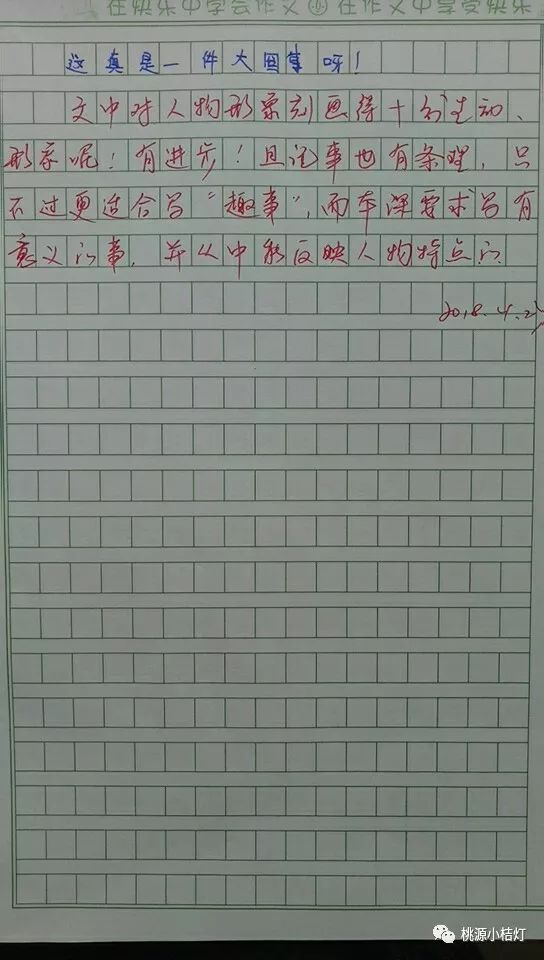 在快乐中学会作文 在作文中享受快乐
这真是一件大囧事呀！
文中对人物形象刻画得十分生动、
形象呢！有进步！且记事也有条理，只
不过更适合写“趣事”，而本课要求写有
意义的事，并从中能反映人物特点的
2018.4.2
桃源小桔灯